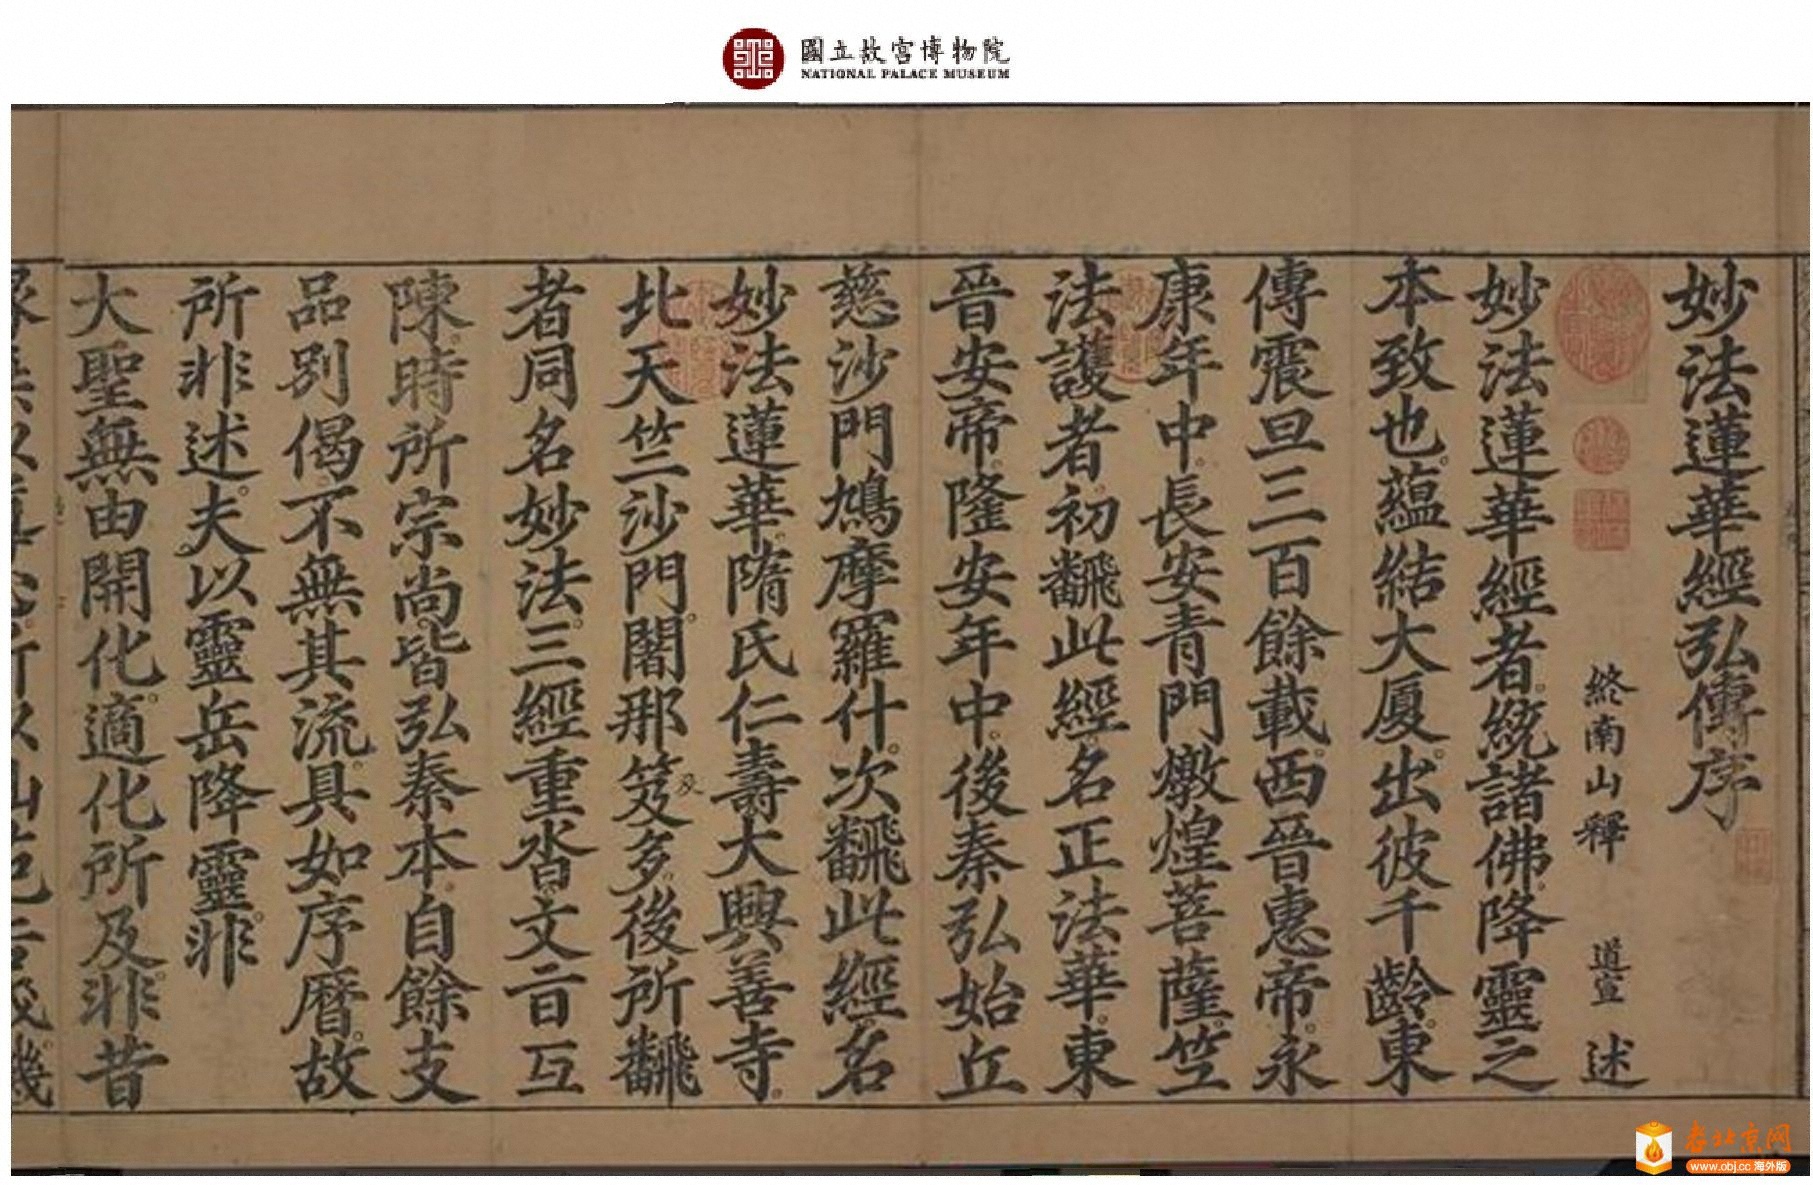 國立故宮博物院
NATIONAL PALACE MUSEUM
妙法蓮華經弘傳序
終南山釋 道宣 述
妙法蓮華經者統諸佛降靈之
本致也蘊結大厦出彼千齡東
傳震旦三百餘載西晉惠帝永
康年中長安青門燉煌菩薩竺
法護者初飜此經名正法華東
晉安帝隆安年中後秦弘始丘
慈沙門鳩摩羅什次飜此經名
妙法蓮華隋氏仁壽大興善寺
北天竺沙門闍那笈多後所飜
及
者同名妙法三經重沓文旨互
陳時所宗尚皆弘秦本自餘支
品別偈不無其流具如序曆故
所非述夫以靈岳降靈非
大聖無由開化適化所及非昔
老北京网
www.obj.cc 海外版